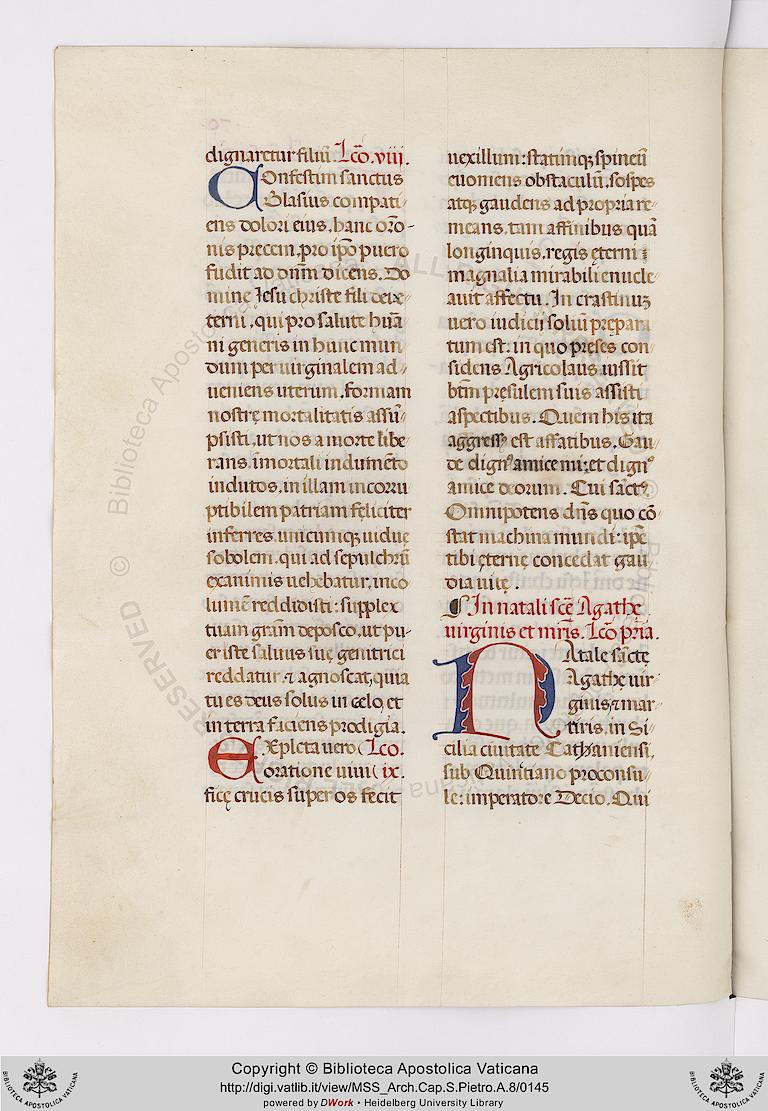 dignaretur filiū. Lc̄o. viii.
Confestim sanctus
Blasius compati-
ens dolori eius, hanc or̄o-
nis precem, pro ip̄o puero
fudit ad dn̄m dicens. Do
mine Iesu christe fili dei ȩ-
terni, qui pro salute hūa
ni generis in hunc mun
dum per uirginalem ad-
ueniens uterum, formam
nostrȩ mortalitatis assū-
psisti, ut nos a morte libe
rans, īmortali indumēto
indutos, in illam incorru
ptibilem patriam feliciter
inferres, unicumqȝ uiduȩ
sobolem, qui ad sepulchrū
exanimis uehebatur, inco
lumē reddidisti: supplex
tuam gr̄am deposco, ut pu-
er iste saluus suȩ genitrici
reddatur, ⁊ agnoscat, quia
tu es deus solus in cȩlo, et
in terra faciens prodigia.
Expleta uero (Lc̄o.
oratione uiui( ix.
ficȩ crucis super os fecit
uexillum: statimqȝ spineū
euomens obstaculū, sospes
atqȝ gaudens ad propria re-
means, tam affinibus quā
longinquis, regis ȩterni
magnalia mirabili enucle-
auit affectu. In crastinuȝ
uero iudicij soliū prȩpara-
tum est: in quo prȩses con-
sidens Agricolaus iussit
bt̄m prȩsulem suis assisti
aspectibus. Quem his ita
aggressꝰ est affatibus. Gau-
de dignꝰ amice mi: et dignꝰ
amice deorum. Cui sāctꝰ.
Omnipotens dn̄s quo cō-
stat machina mundi: ip̄e
tibi ȩternȩ concedat gau-
dia uitȩ.
¶ In natali sc̄ȩ Agathȩ
uirginis et mr̄is. Lc̄o pr̄ia.
Natale sāctȩ
Agathȩ uir-
ginis, ⁊ mar-
tiris, in Si-
cilia ciuitate Cathaniensi,
sub Quintiano proconsu-
le: imperatore Decio. Qui
© Biblioteca Apostolica Vaticana
ALL RIGHTS RESERVED
Copyright © Biblioteca Apostolica Vaticana
http://digi.vatlib.it/view/MSS_Arch.Cap.S.Pietro.A.8/0145
powered by DWork • Heidelberg University Library
BIBLIOTECA APOSTOLICA VATICANA
BIBLIOTECA APOSTOLICA VATICANA